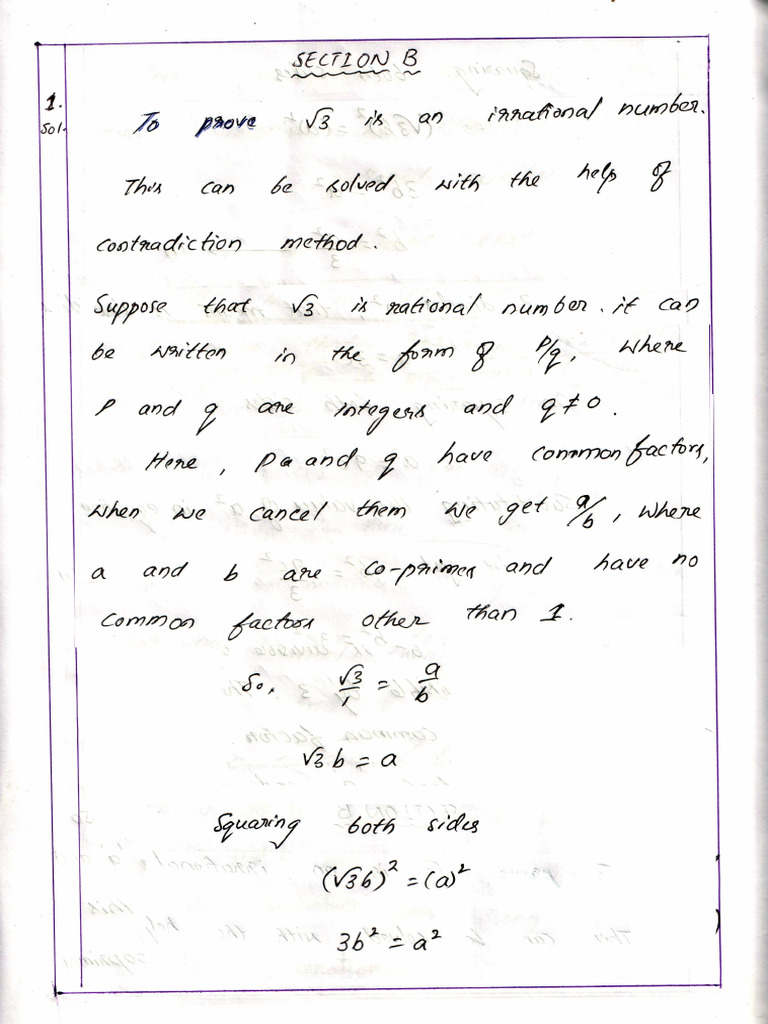 SECTION B
1.
Sol. To prove √3 is an irrational number.
This can be solved with the help of
contradiction method.
Suppose that √3 is rational number. it can
be written in the form of P/q, where
P and q are integers and q ≠ 0.
Here, P a and q have common factors,
when we cancel them we get a/b, where
a and b are co-primes and have no
common factors other than 1.
So, √3/1 = a/b
√3 b = a
Squaring both sides
(√3b)² = (a)²
3b² = a²